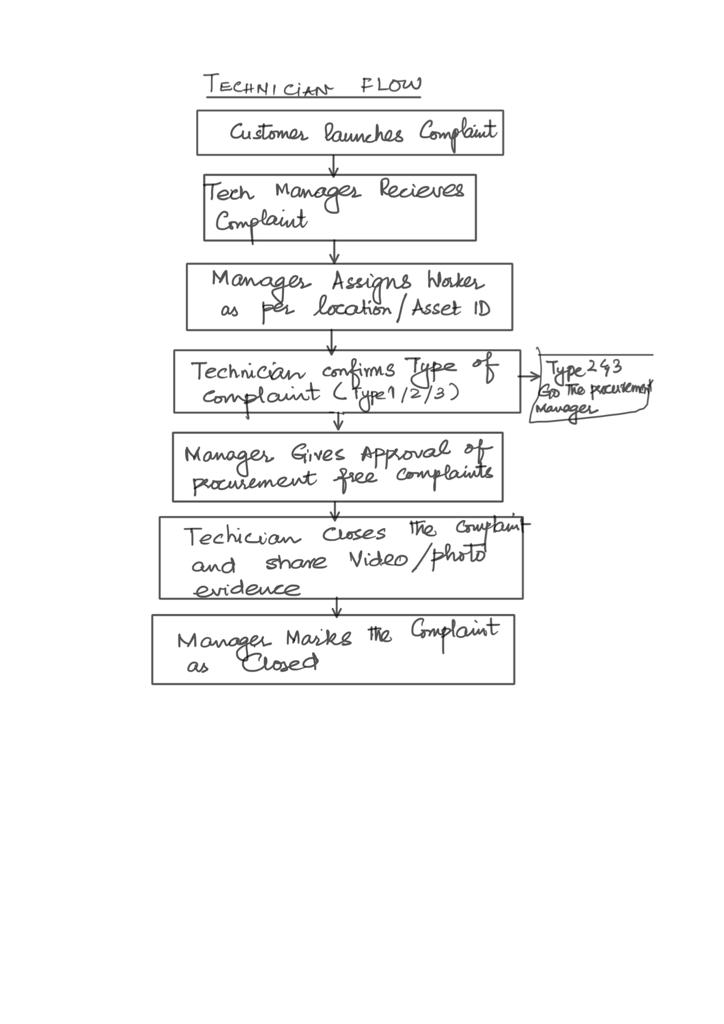 TECHNICIAN FLOW
Customer launches Complaint
Tech Manager Recieves
Complaint
Manager Assigns Worker
as per location/Asset ID
Technician confirms Type of
complaint (Type1/2/3)
Type 2&3
Go The procurement
Manager
Manager Gives Approval of
procurement free complaints
Techician Closes the Complaint
and share Video/photo
evidence
Manager Marks the Complaint
as Closed